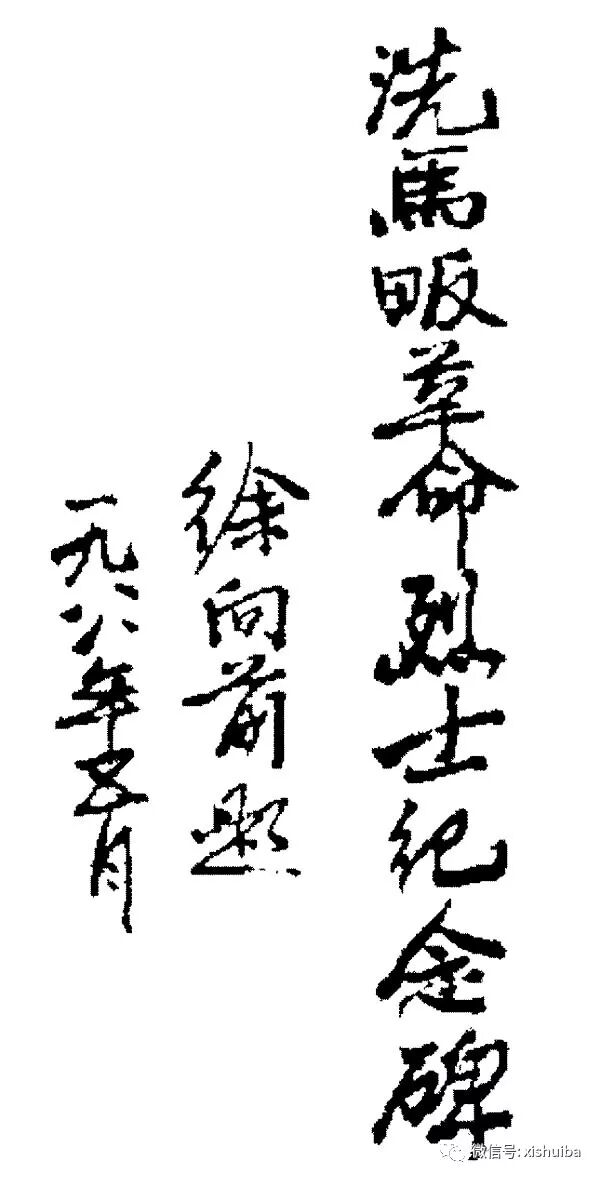 洗馬畈革命烈士纪念碑
徐向前题
一九八八年五月
微信号: xishuiba